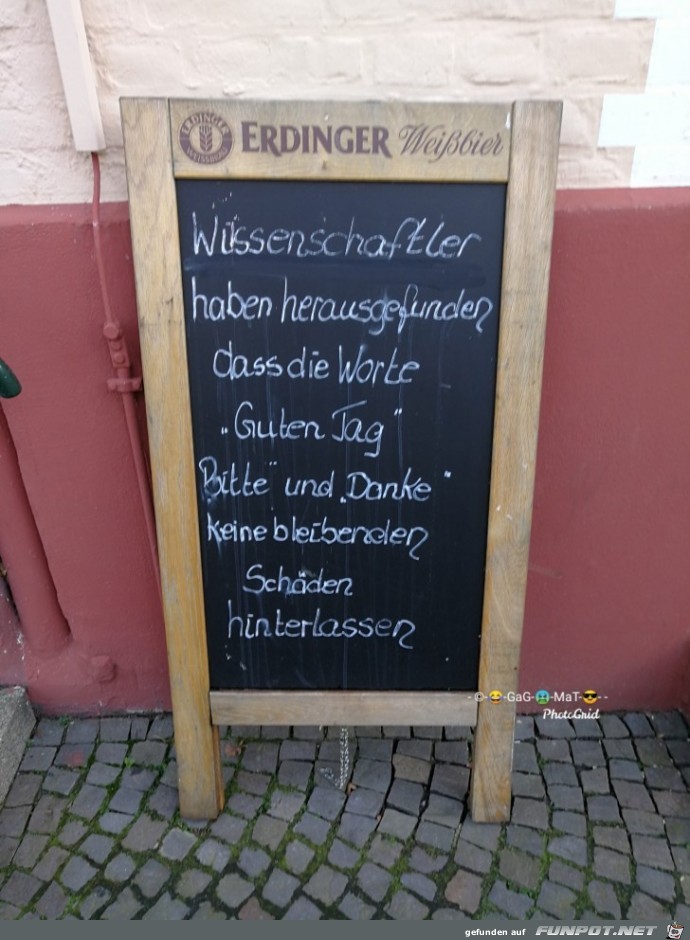 ERDINGER
WEISSBRÄU
ERDINGER Weißbier
Wissenschaftler
haben herausgefunden
dass die Worte
„Guten Tag"
Bitte" und „Danke"
keine bleibenden
Schäden
hinterlassen
-©-😂-GaG-🤮-MaT-😎--
PhotoGrid
gefunden auf FUNPOT.NET